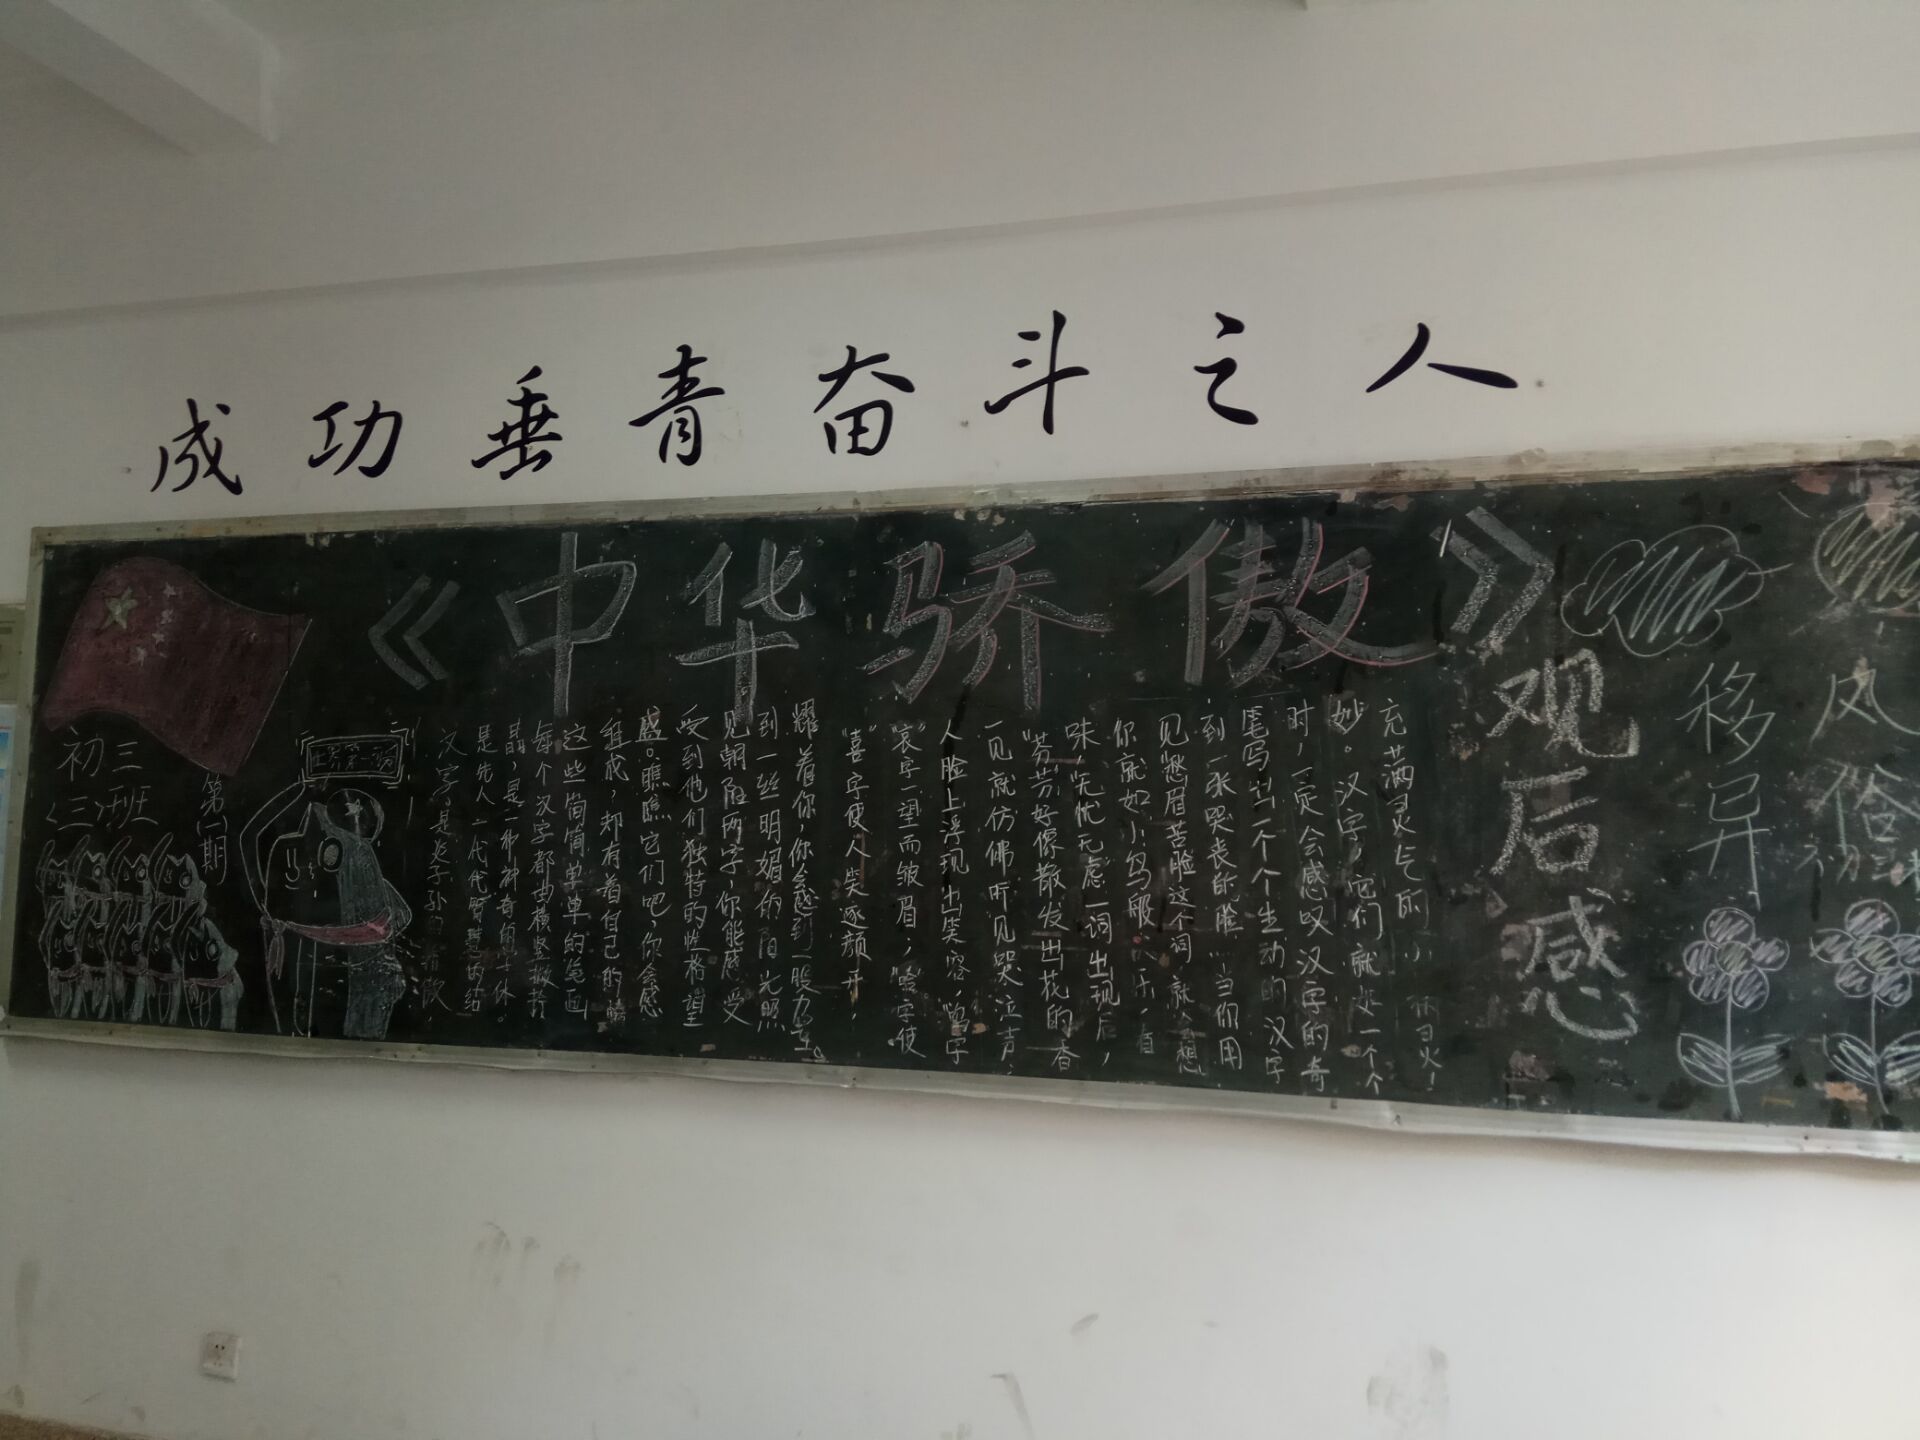 成功垂青奋斗之人
《中华骄傲》
观后感
初三
三班
第一期
汉字,是炎子孙的精散,
是先人一代代智慧的结
晶,是一部神奇的
每个汉字都由横竖撇捺
这些简简单单的笔画
组成,却有着自己的情
感。瞧瞧它们吧,你会感
受到他们独特的性格望
见朝阳两字,你能感受
到一丝明媚的阳光照
耀着你,你会感到一股力量。
"喜"字使人笑逐颜开,
"哀"字一望而皱眉;"哈"字使
人脸上浮现出笑容,"鸣"字
一见就仿佛听见哭泣声;
"芬芳"好像散发出花的香
味,"无忧无虑"一词出现后,
你就如小鸟般快乐,看
见"愁眉苦脸"这个词就会想
到一张哭丧的脸,当你用
笔写出一个个生动的汉字
时,一定会感叹汉字的奇
妙。汉字,它们就是一个个
充满灵气的小
移风
异俗